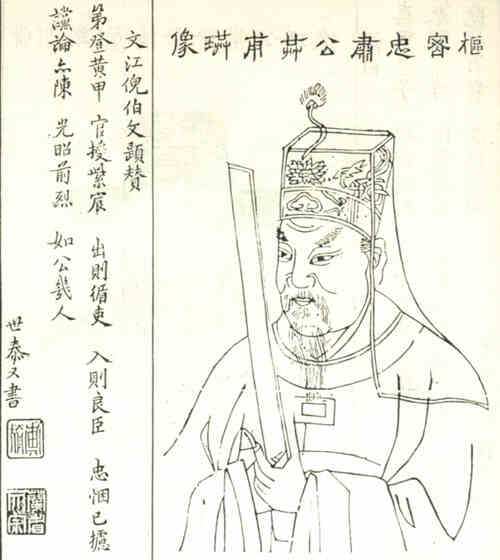 樞密忠肅公共甫珙像
文江倪伯文題贊
第登黃甲 官授紫宸 出則循吏 入則良臣 忠悃已攄
讜論亦陳 光昭前烈 如公幾人
世泰又書